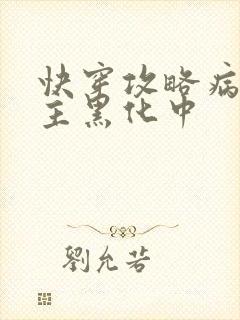 快穿攻略病
主黑化中
劉允若